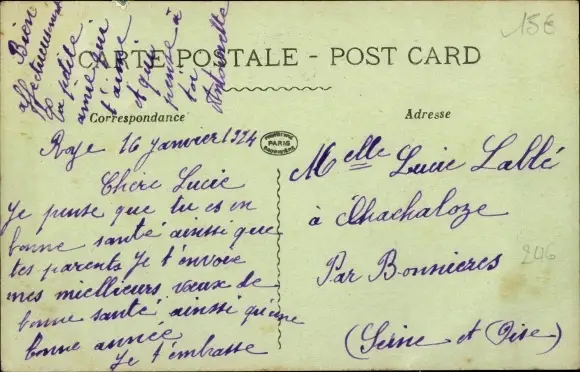 15€
CARTE POSTALE - POST CARD
Correspondance
Adresse
PARIS
Roye 16 janvier 1924
Chère Lucie
Je pense que tu es en
bonne santé ainsi que
tes parents Je t'envoie
mes mielleurs vœux de
bonne santé ainsi qu'une
bonne année
Je t'embrasse
Bien
affectueusement
Ta fidèle
amie qui
t'aime
et qui
pense à
toi
Antoinette
Melle Lucie Lablé
à Chachaloze
Par Bonnieres
(Seine et Oise)
246